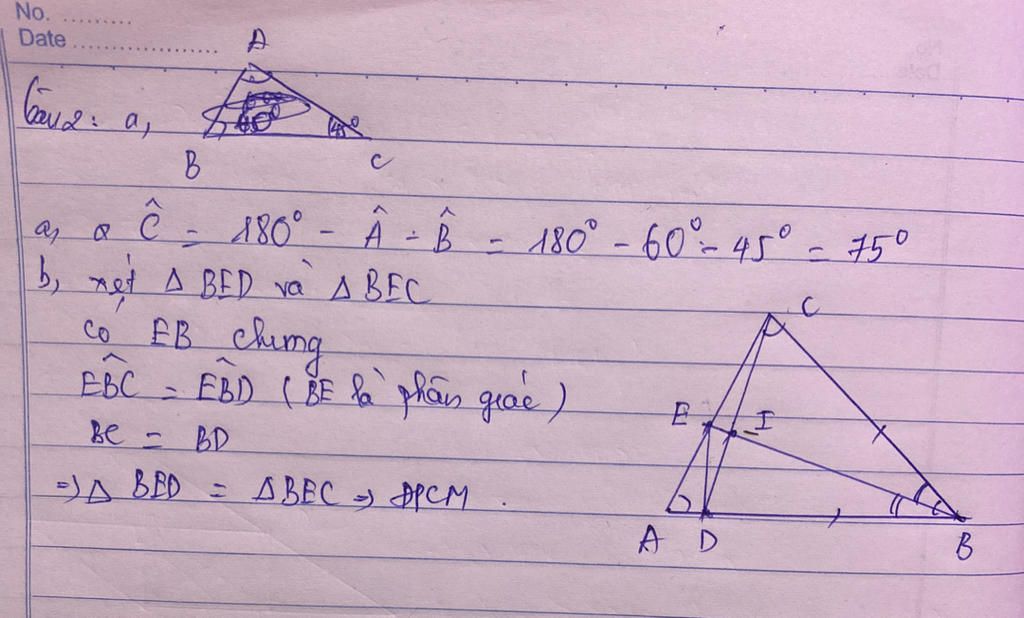 No. .........
Date ..................
A
Câu 2: a,
60° 45°
B C
a, Ĉ = 180° - Â - B̂ = 180° - 60° - 45° = 75°
b, xét Δ BED và Δ BEC
có EB chung
EBC = EBD (BE là phân giác)
BC = BD
=> Δ BED = Δ BEC => ĐPCM.
C
E I
A D B